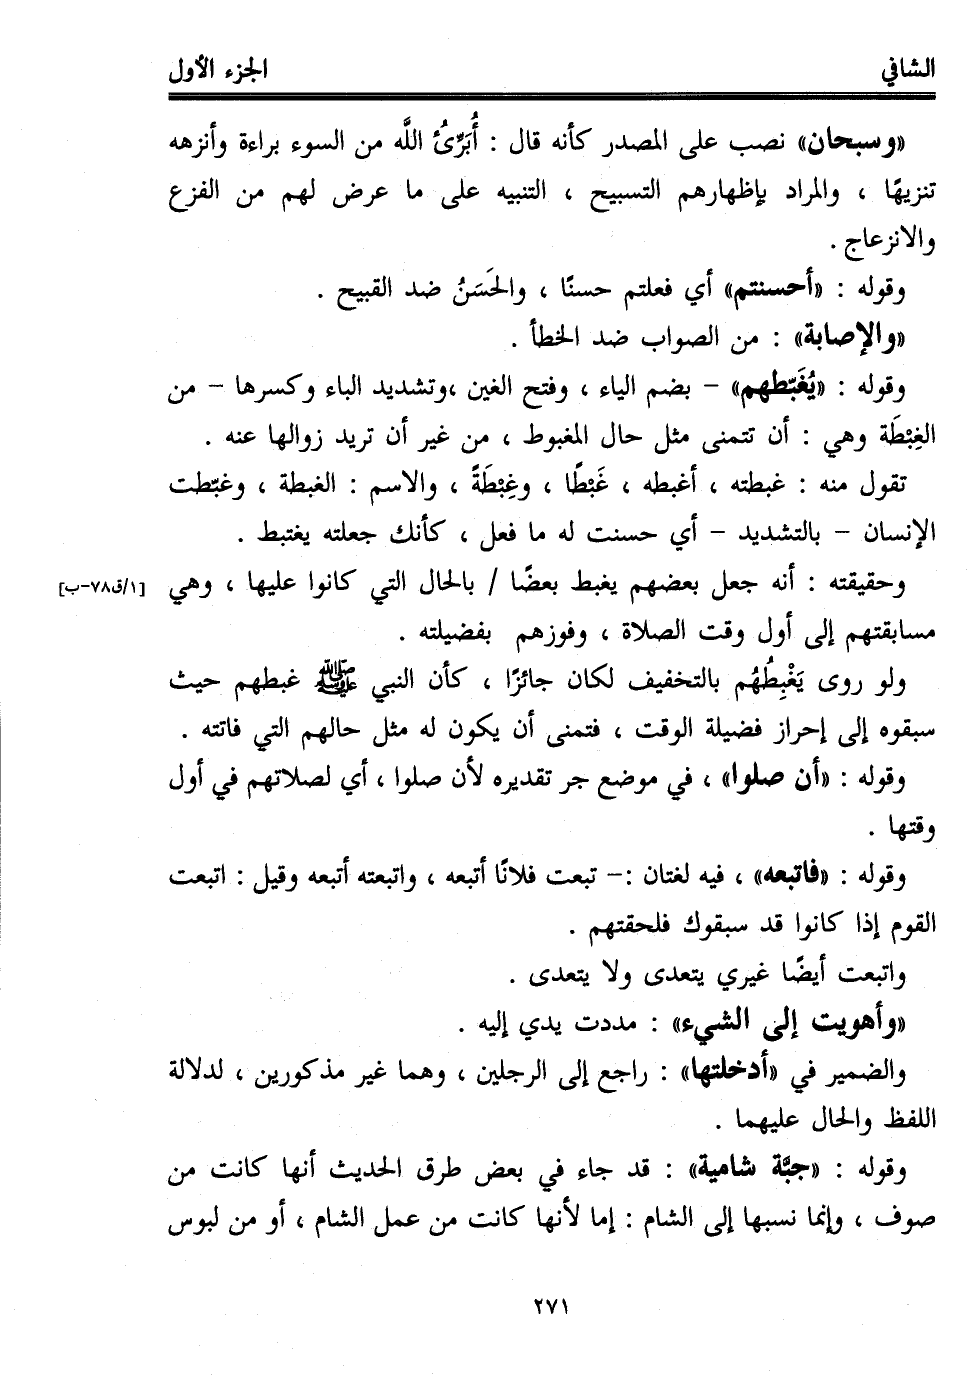 الشافي الجزء الأول
«وسبحان» نصب على المصدر كأنه قال : أُبَرِّئُ اللَّه من السوء براءة وأنزهه
تنزيهًا ، والمراد بإظهارهم التسبيح ، التنبيه على ما عرض لهم من الفزع
والانزعاج .
وقوله : «أحسنتم» أي فعلتم حسنًا ، والحَسَنُ ضد القبيح .
«والإصابة» : من الصواب ضد الخطأ .
وقوله : «يُغَبِّطهم» – بضم الياء ، وفتح الغين ،وتشديد الباء وكسرها – من
الغِبْطَة وهي : أن تتمنى مثل حال المغبوط ، من غير أن تريد زوالها عنه .
تقول منه : غبطته ، أغبطه ، غَبْطًا ، وغِبْطَةً ، والاسم : الغبطة ، وغبّطت
الإنسان – بالتشديد – أي حسنت له ما فعل ، كأنك جعلته يغتبط .
وحقيقته : أنه جعل بعضهم يغبط بعضًا / بالحال التي كانوا عليها ، وهي [١/ق٧٨-ب]
مسابقتهم إلى أول وقت الصلاة ، وفوزهم بفضيلته .
ولو روى يَغْبِطُهُم بالتخفيف لكان جائزًا ، كأن النبي ﷺ غبطهم حيث
سبقوه إلى إحراز فضيلة الوقت ، فتمنى أن يكون له مثل حالهم التي فاتته .
وقوله : «أن صلوا» ، في موضع جر تقديره لأن صلوا ، أي لصلاتهم في أول
وقتها .
وقوله : «فاتبعه» ، فيه لغتان :– تبعت فلانًا أتبعه ، واتبعته أتبعه وقيل : اتبعت
القوم إذا كانوا قد سبقوك فلحقتهم .
واتبعت أيضًا غيري يتعدى ولا يتعدى .
«وأهويت إلى الشيء» : مددت يدي إليه .
والضمير في «أدخلتها» : راجع إلى الرجلين ، وهما غير مذكورين ، لدلالة
اللفظ والحال عليهما .
وقوله : «جبَّة شامية» : قد جاء في بعض طرق الحديث أنها كانت من
صوف ، وإنما نسبها إلى الشام : إما لأنها كانت من عمل الشام ، أو من لبوس
٢٧١